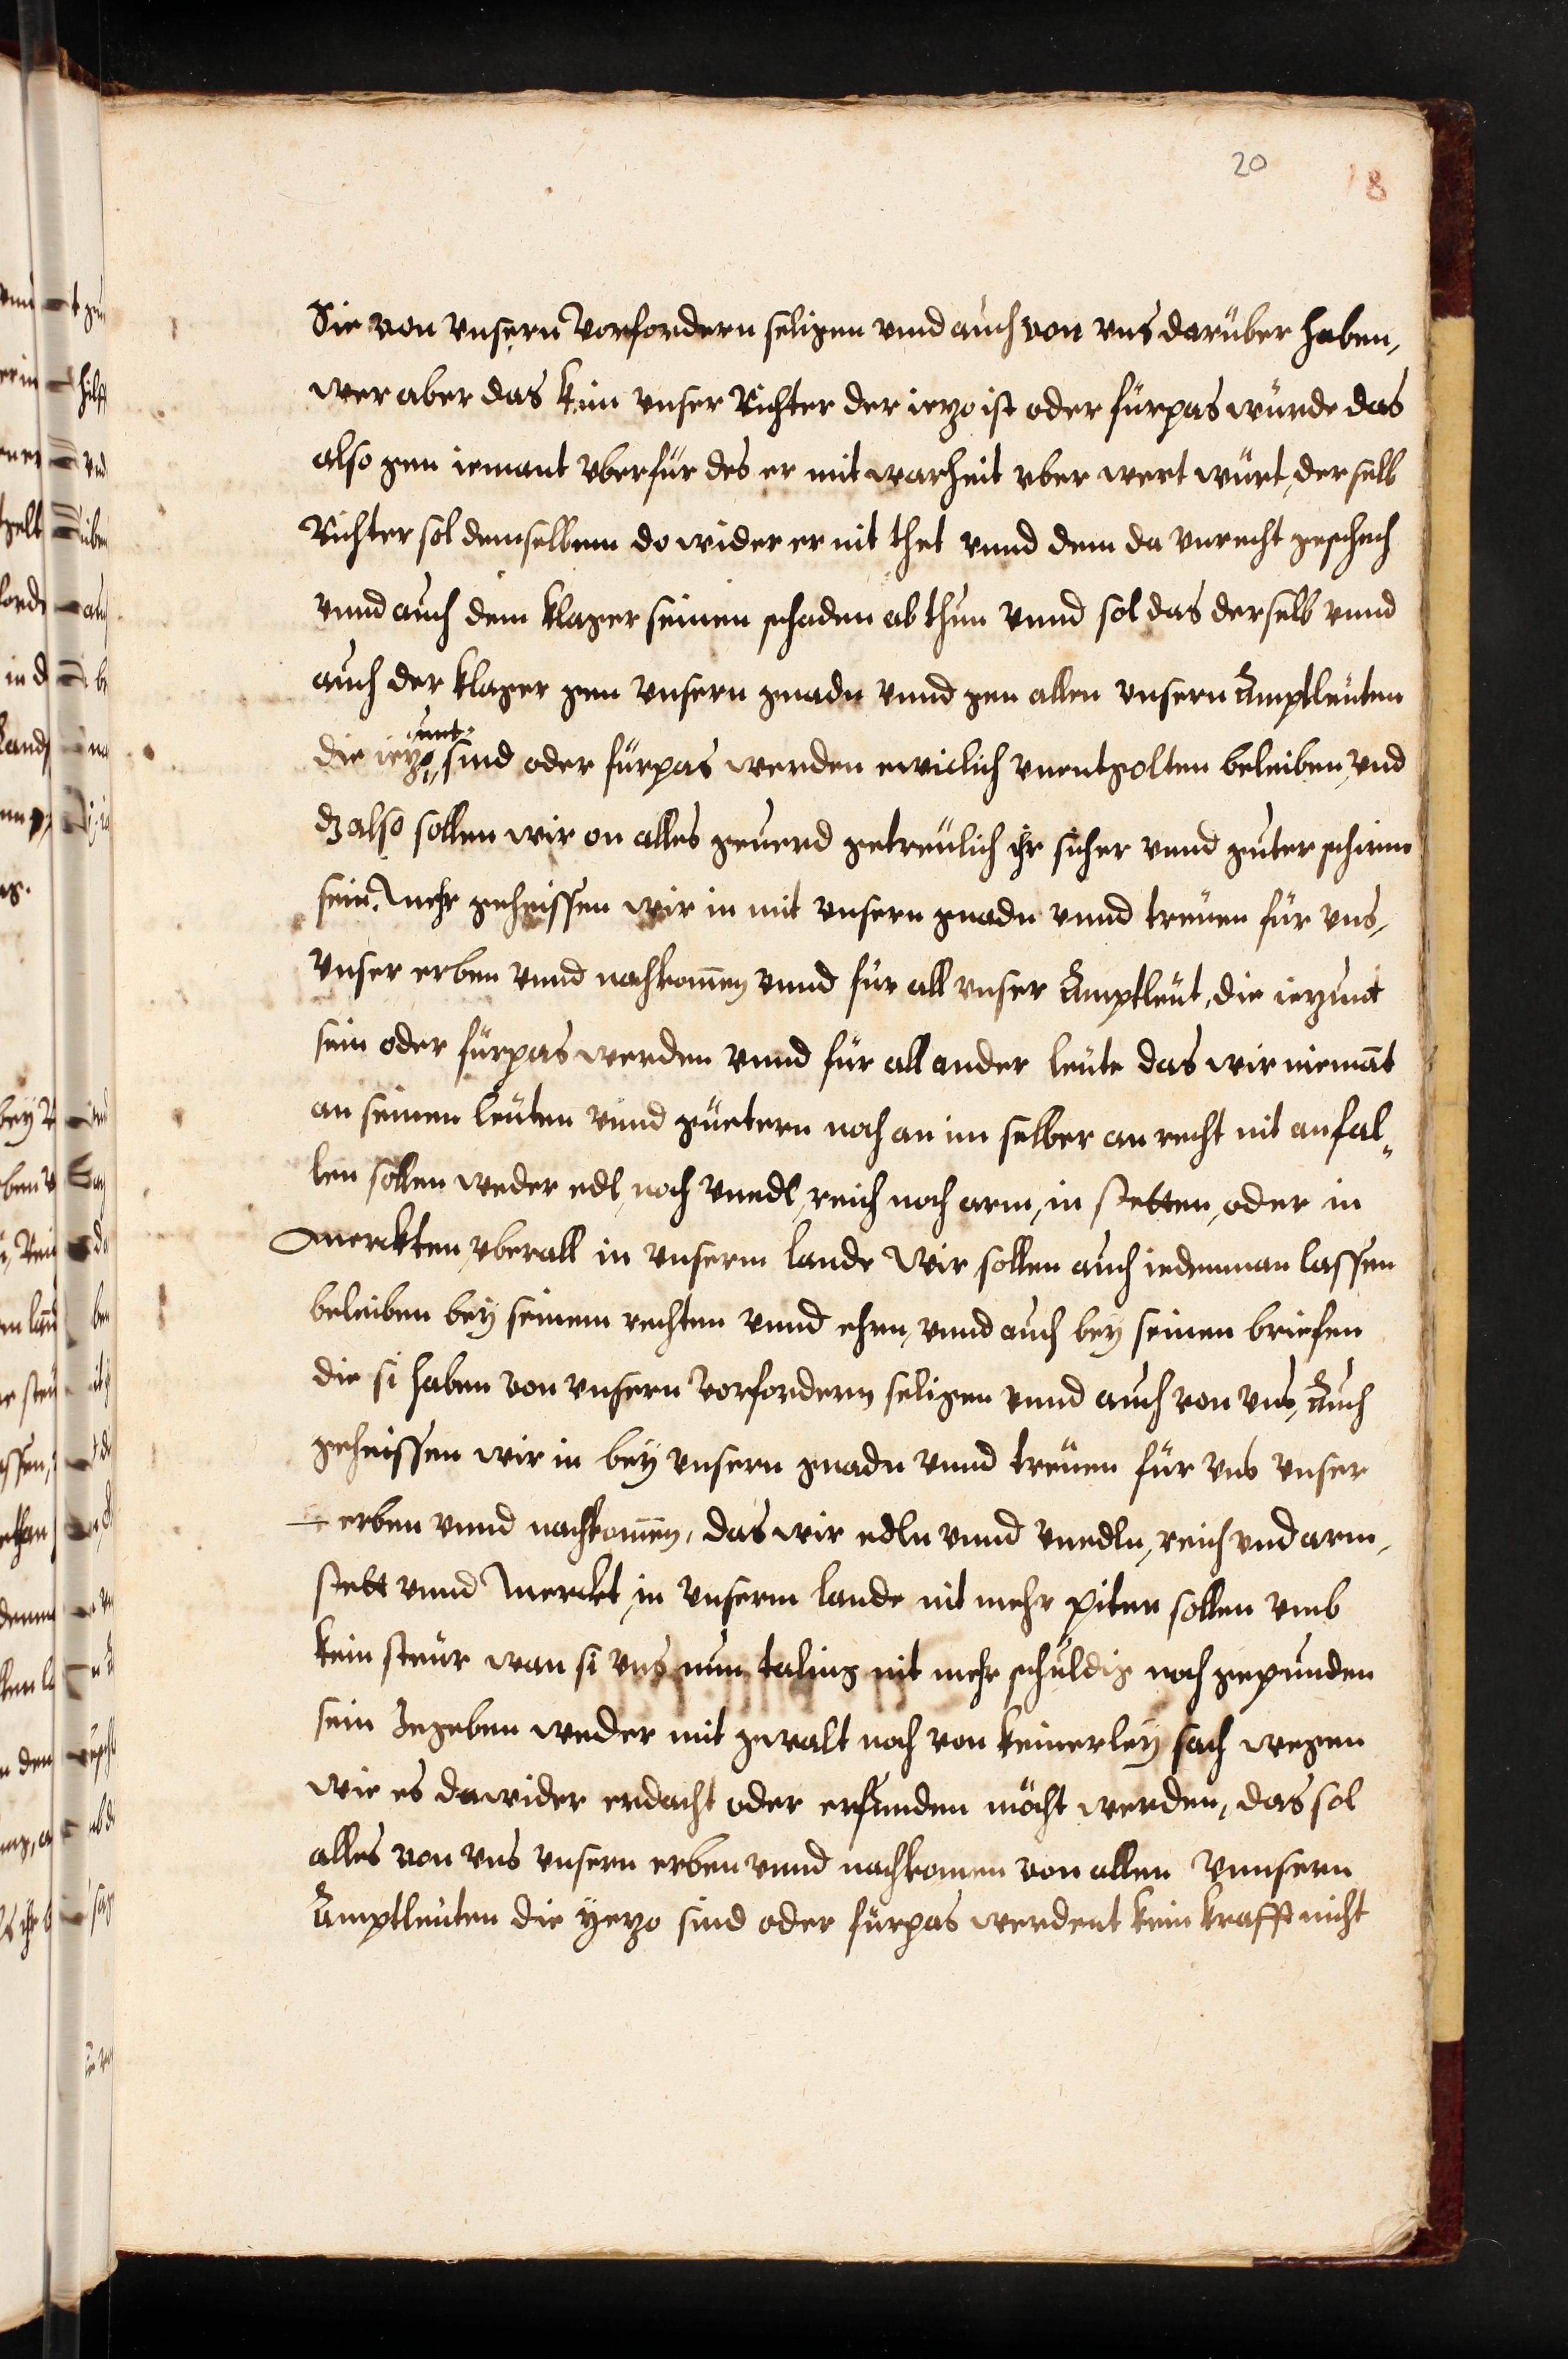 20
18
Sie von vnsern Vorfordern seligen vnnd auch von vns darüber haben,
wer aber das kein vnser Richter der ieczo ist oder fürpas würde das
also gen iemant vberfür des er mit warheit vber wert würt, derselb
Richter sol demselbenn do wider er nit thet vnnd dem da vnrecht geschech
vnnd auch dem klager seinen schaden abthun vnnd sol das derselb vnnd
auch der klager gen vnsern gnadn vnnd gen allen vnsern Amptleuten
unt
die ieczo sind oder fürpas werden ewiclich vnentgolten beleiben, vnd
dz also sollen wir on alles geuerd getreulich ihr sicher vnnd guter schirm
sein. Mehr geheissen wir in mit vnsern gnadn vnnd treuen für vns,
vnser erben vnnd nachkomen vnnd für all vnser Amptleut, die ieczunt
sein oder fürpas werden vnnd für all ander leute das wir niemāt
an seinen leuten vnnd güetern noch an im selber an recht nit anfal„
len sollen weder edl, noch vnedl, reich noch arm, in stetten, oder in
Merckten, vberall in vnserm lande Wir sollen auch iedermman lassen
beleiben bey seinem rechten vnnd ehrn, vnnd auch bey seinen briefen
die si haben von vnsern Vorfordern seligen vnnd auch von vns, Auch
geheissen wir in bey vnsern gnadn vnnd treuen für vns vnser
erben vnnd nachkomen, das wir edln vnnd vnedln, reich vnd arm,
stett vnnd Merckt, in vnserm lande nit mehr piten sollen vmb
kein steur wan si vns nun taling nit mehr schuldig noch gepunden
sein zegeben weder mit gwalt noch von keinerley sach wegen
wie es dawider erdacht oder erfunden möcht werden, das sol
alles von vns vnsern erben vnnd nachkomen von allen vnnsern
Amptleuten die yeczo sind oder fürpas werdent kein krafft nicht